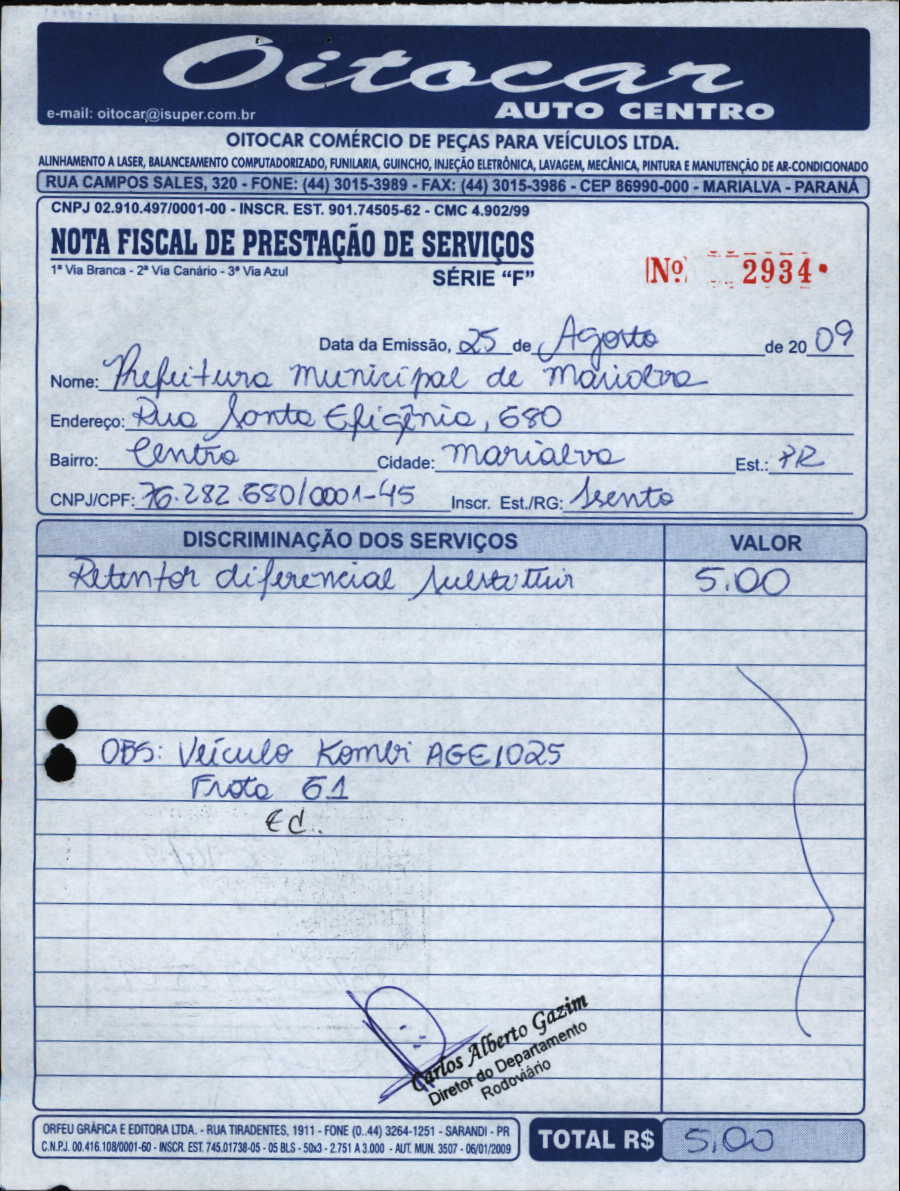 Oitocar
e-mail: oitocar@isuper.com.br AUTO CENTRO
OITOCAR COMÉRCIO DE PEÇAS PARA VEÍCULOS LTDA.
ALINHAMENTO A LASER, BALANCEAMENTO COMPUTADORIZADO, FUNILARIA, GUINCHO, INJEÇÃO ELETRÔNICA, LAVAGEM, MECÂNICA, PINTURA E MANUTENÇÃO DE AR-CONDICIONADO
RUA CAMPOS SALES, 320 - FONE: (44) 3015-3989 - FAX: (44) 3015-3986 - CEP 86990-000 - MARIALVA - PARANÁ
CNPJ 02.910.497/0001-00 - INSCR. EST. 901.74505-62 - CMC 4.902/99
NOTA FISCAL DE PRESTAÇÃO DE SERVIÇOS
1ª Via Branca - 2ª Via Canário - 3ª Via Azul SÉRIE "F"
Nº 2934
Data da Emissão, 25 de Agosto de 2009
Nome: Prefeitura Municipal de Marialva
Endereço: Rua Santa Efigênia, 680
Bairro: Centro Cidade: Marialva Est.: PR
CNPJ/CPF: 76.282.680/0001-45 Inscr. Est./RG: Isento
DISCRIMINAÇÃO DOS SERVIÇOS VALOR
Retentor diferencial substituir 5,00
OBS: Veículo Kombi AGE1025
Frota 61
Ed.
Carlos Alberto Gazim
Diretor do Departamento
Rodoviário
ORFEU GRÁFICA E EDITORA LTDA. - RUA TIRADENTES, 1911 - FONE (0..44) 3264-1251 - SARANDI - PR
C.N.P.J. 00.416.108/0001-60 - INSCR. EST. 745.01738-05 - 05 BLS - 50x3 - 2.751 A 3.000 - AUT. MUN. 3507 - 06/01/2009
TOTAL R$ 5,00